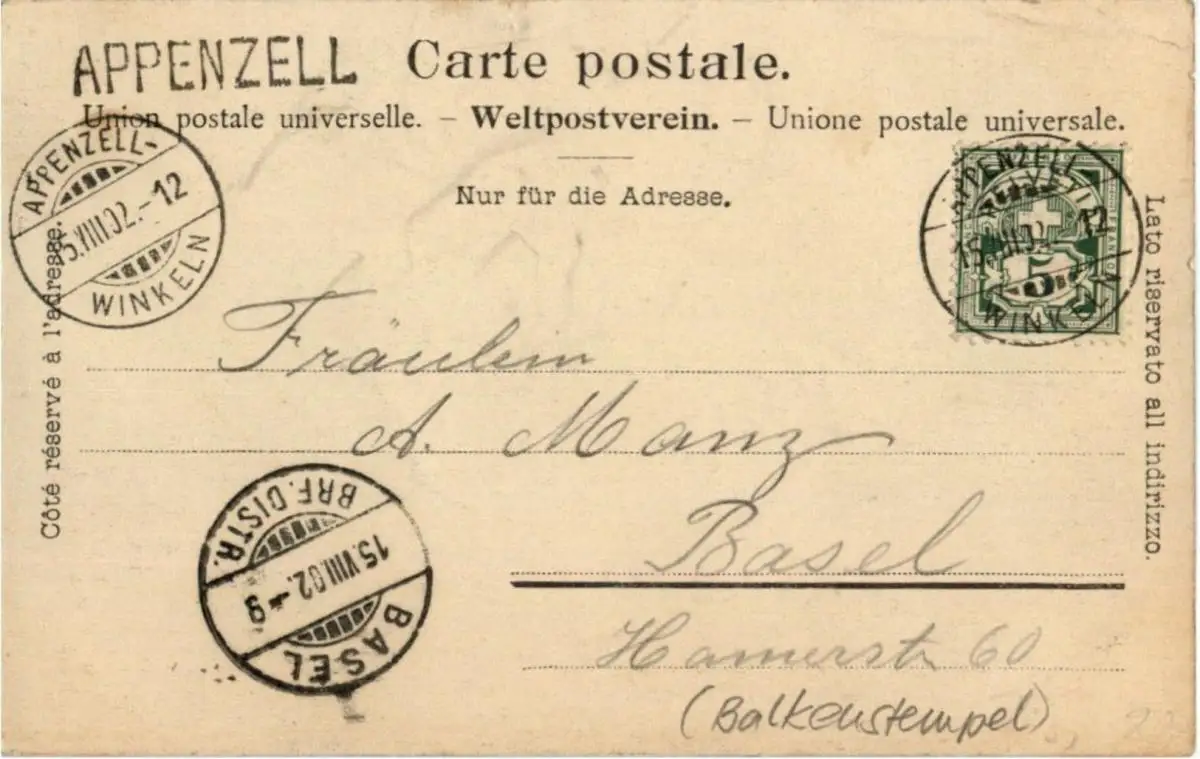 APPENZELL
Carte postale.
Union postale universelle. – Weltpostverein. – Unione postale universale.
Nur für die Adresse.
APPENZELL-
15.VIII.02.-12
WINKELN
APPENZELL
15.VIII.02.-12
WINKELN
HELVETIA
FRANCO
5
Côté réservé à l'adresse.
Lato riservato all indirizzo.
Fräulein
A. Manz
Basel
60
(Balkenstempel)
BRF. DISTR.
15.VIII.02.-9
BASEL